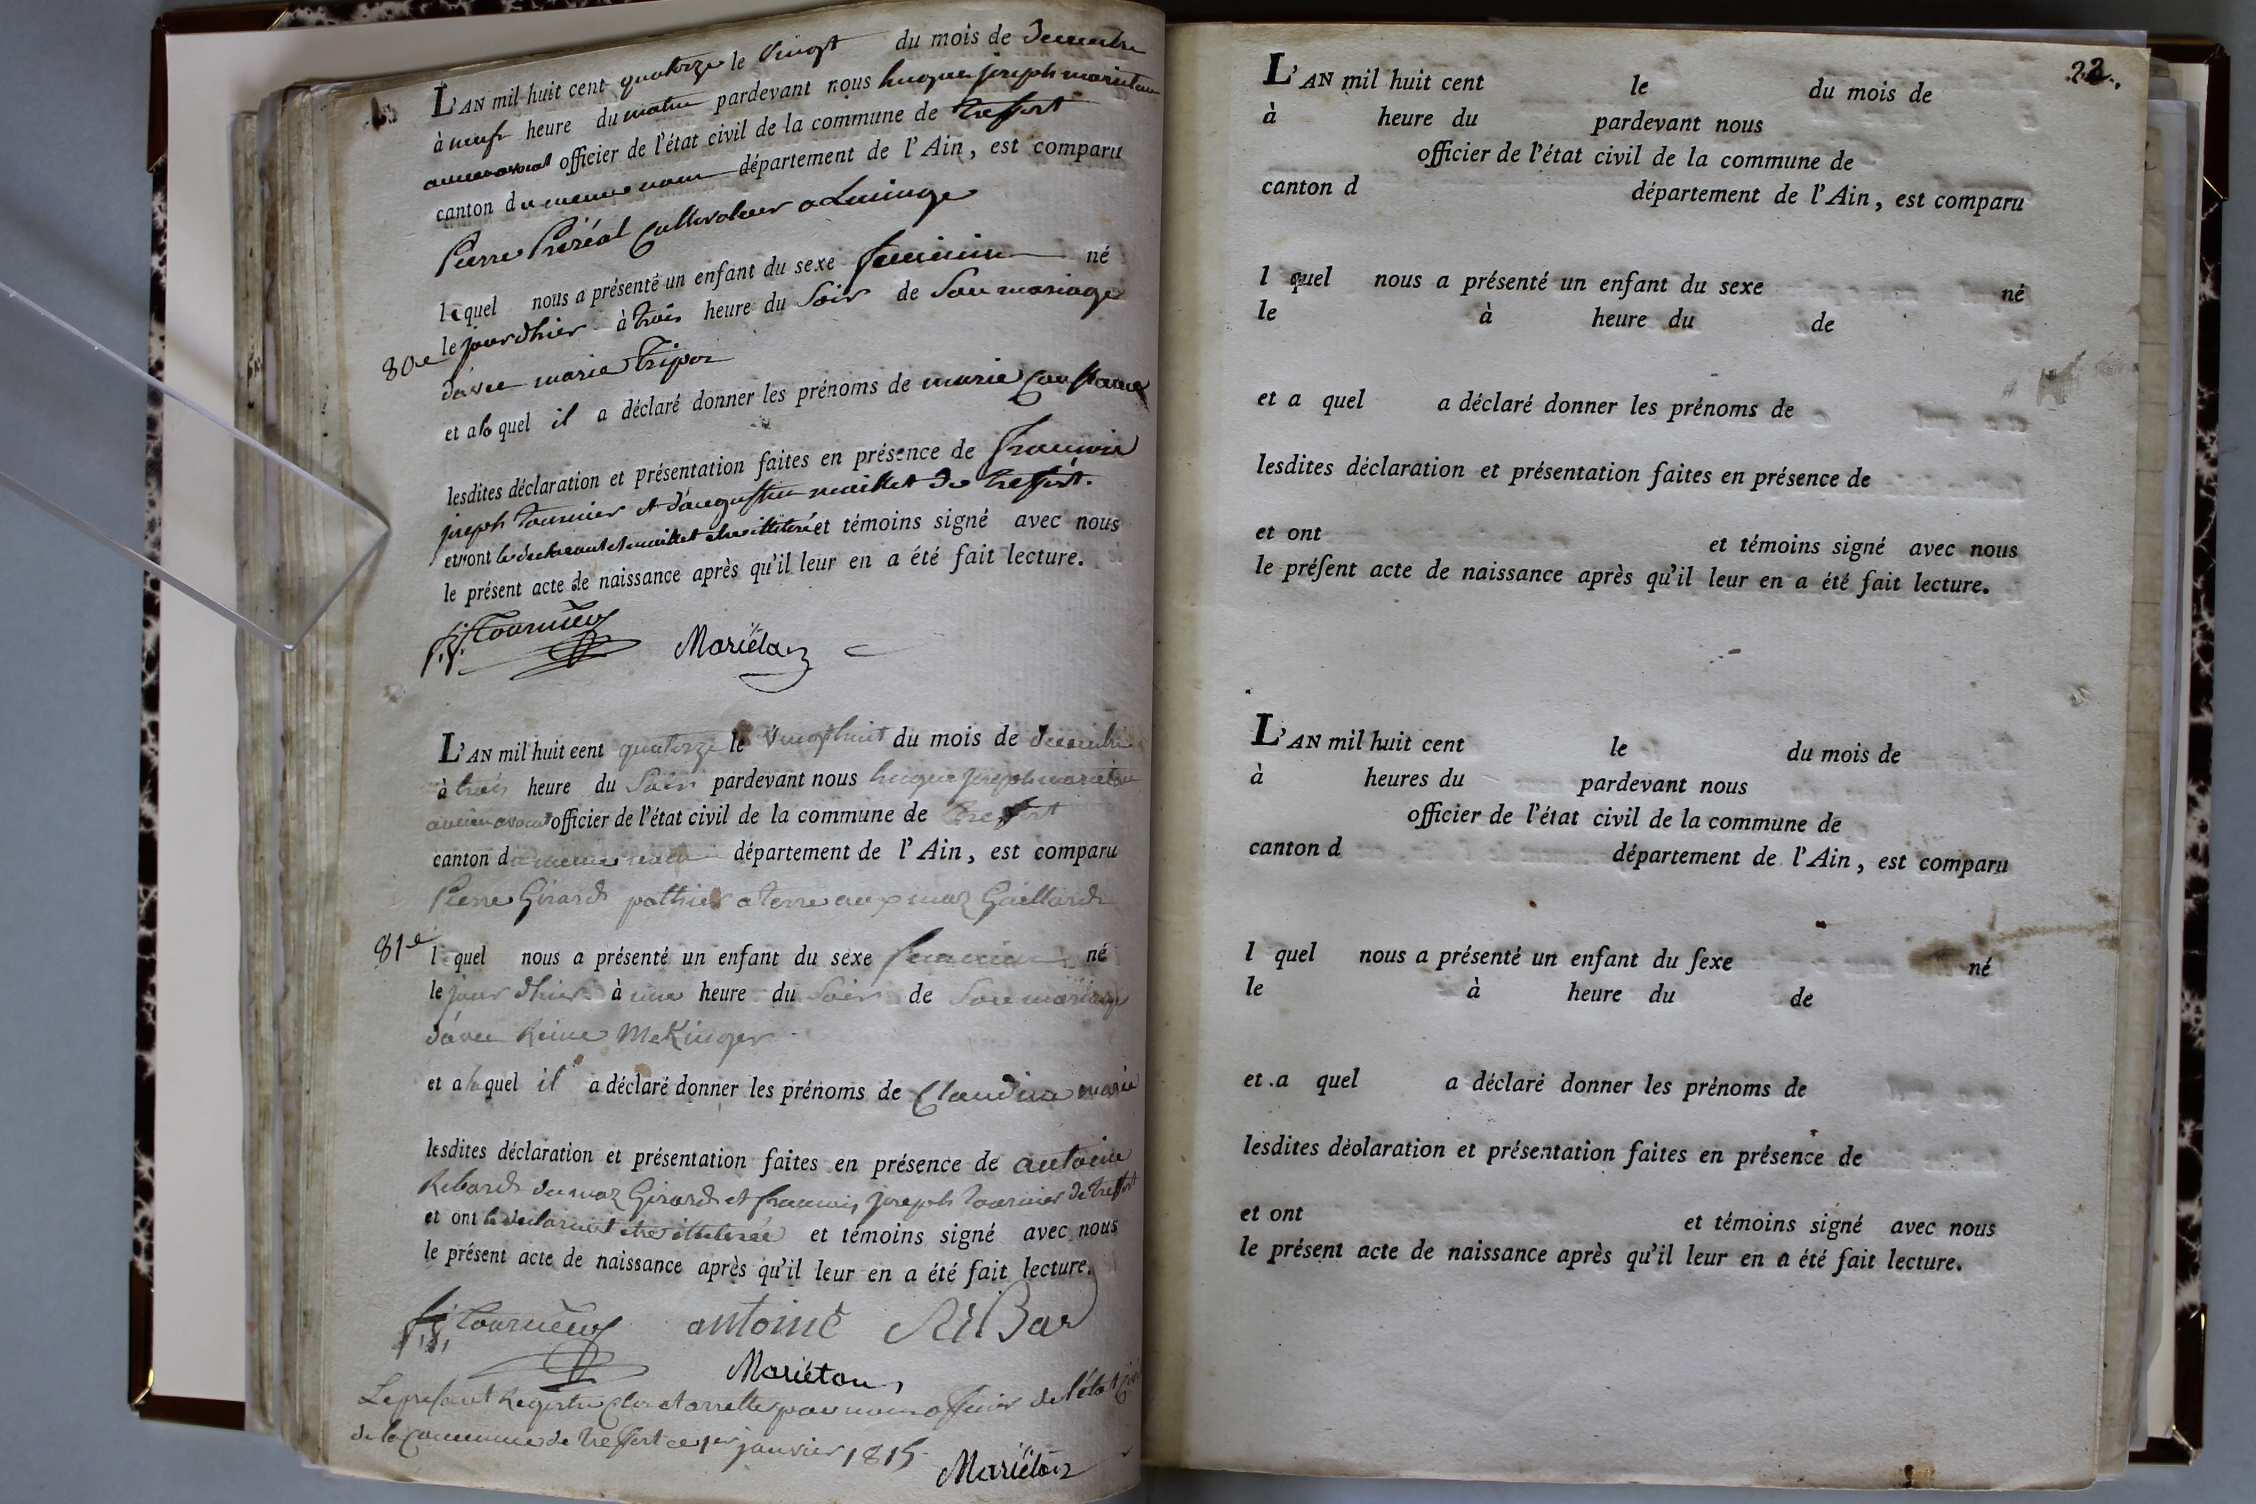 L'AN mil huit cent quatorze le Vingt du mois de decembre
à neuf heure du matin pardevant nous hugue joseph marieton
ancien avocat officier de l'état civil de la commune de treffort
canton du meme nom département de l'Ain, est comparu
Pierre Préréal Cultivateur a Lucinge
lequel nous a présenté un enfant du sexe feminin né
le jour dhier à trois heure du Soir de Son mariage
80e
d'avec marie Tripoz
et a laquel il a déclaré donner les prénoms de marie Constance
lesdites déclaration et présentation faites en présence de francois
joseph tournier et d'augustin maillet de treffort.
et ont le declarant et maillet etre illitéré et témoins signé avec nous
le présent acte de naissance après qu'il leur en a été fait lecture.
f. j. Tournier
Mariéton
L'AN mil huit cent quatorze le Vingt huit du mois de decembre
à trois heure du Soir pardevant nous hugue joseph marieton
ancien avocat officier de l'état civil de la commune de treffort
canton du meme nom département de l'Ain, est comparu
Pierre Girard pathier a terre aux maz Gaillard
81e
lequel nous a présenté un enfant du sexe feminin né
le jour dhier à une heure du Soir de Son mariage
d'avec Reine MeKinger
et a laquel il a déclaré donner les prénoms de Claudine marie
lesdites déclaration et présentation faites en présence de antoine
Rebard du maz Girard et francois joseph tournier de treffort
et ont le declarant etre illiterée et témoins signé avec nous
le présent acte de naissance après qu'il leur en a été fait lecture.
f. j. Tournier antoine RiBar
Mariéton
Le present Registre Clos et arretté par nous officier de l'état civil
de la Commune de treffort ce 1er janvier 1815
Mariéton
22.
L'AN mil huit cent le du mois de
à heure du pardevant nous
officier de l'état civil de la commune de
canton d département de l'Ain, est comparu
l quel nous a présenté un enfant du sexe né
le à heure du de
et a quel a déclaré donner les prénoms de
lesdites déclaration et présentation faites en présence de
et ont et témoins signé avec nous
le préſent acte de naissance après qu'il leur en a été fait lecture.
L'AN mil huit cent le du mois de
à heures du pardevant nous
officier de l'état civil de la commune de
canton d département de l'Ain, est comparu
l quel nous a présenté un enfant du ſexe né
le à heure du de
et .a quel a déclaré donner les prénoms de
lesdites déolaration et présentation faites en présence de
et ont et témoins signé avec nous
le présent acte de naissance après qu'il leur en a été fait lecture.